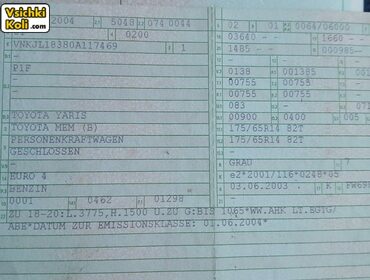 Vsichki
Koli.com
2004 5048 0740044
02 01 0064/06000
01 0200
03640- 1660 -
VNKJL18380A117469 1
1485- - 000985-
-
P1F
0138 001385
00755 00755
- 00755 00755
083 - -
TOYOTA YARIS
00900 0400 005
TOYOTA MEM (B)
175/65R14 82T
PERSONENKRAFTWAGEN
175/65R14 82T
GESCHLOSSEN
-
-
GRAU 7
EURO 4
e2*2001/116*0248*05
BENZIN
03.06.2003 K
0001 0462 01298
ZU 18-20:L.3775,H.1500 U.ZU G:BIS 1065*WW.AHK LT.EGTG/
ABE*DATUM ZUR EMISSIONSKLASSE: 01.06.2004*